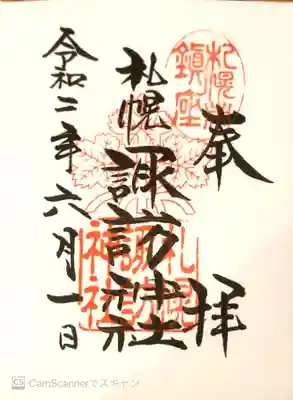 奉拝
札幌鎮座
札幌
諏訪神社
札幌諏訪神社
令和二年六月一日
CS CamScannerでスキャン